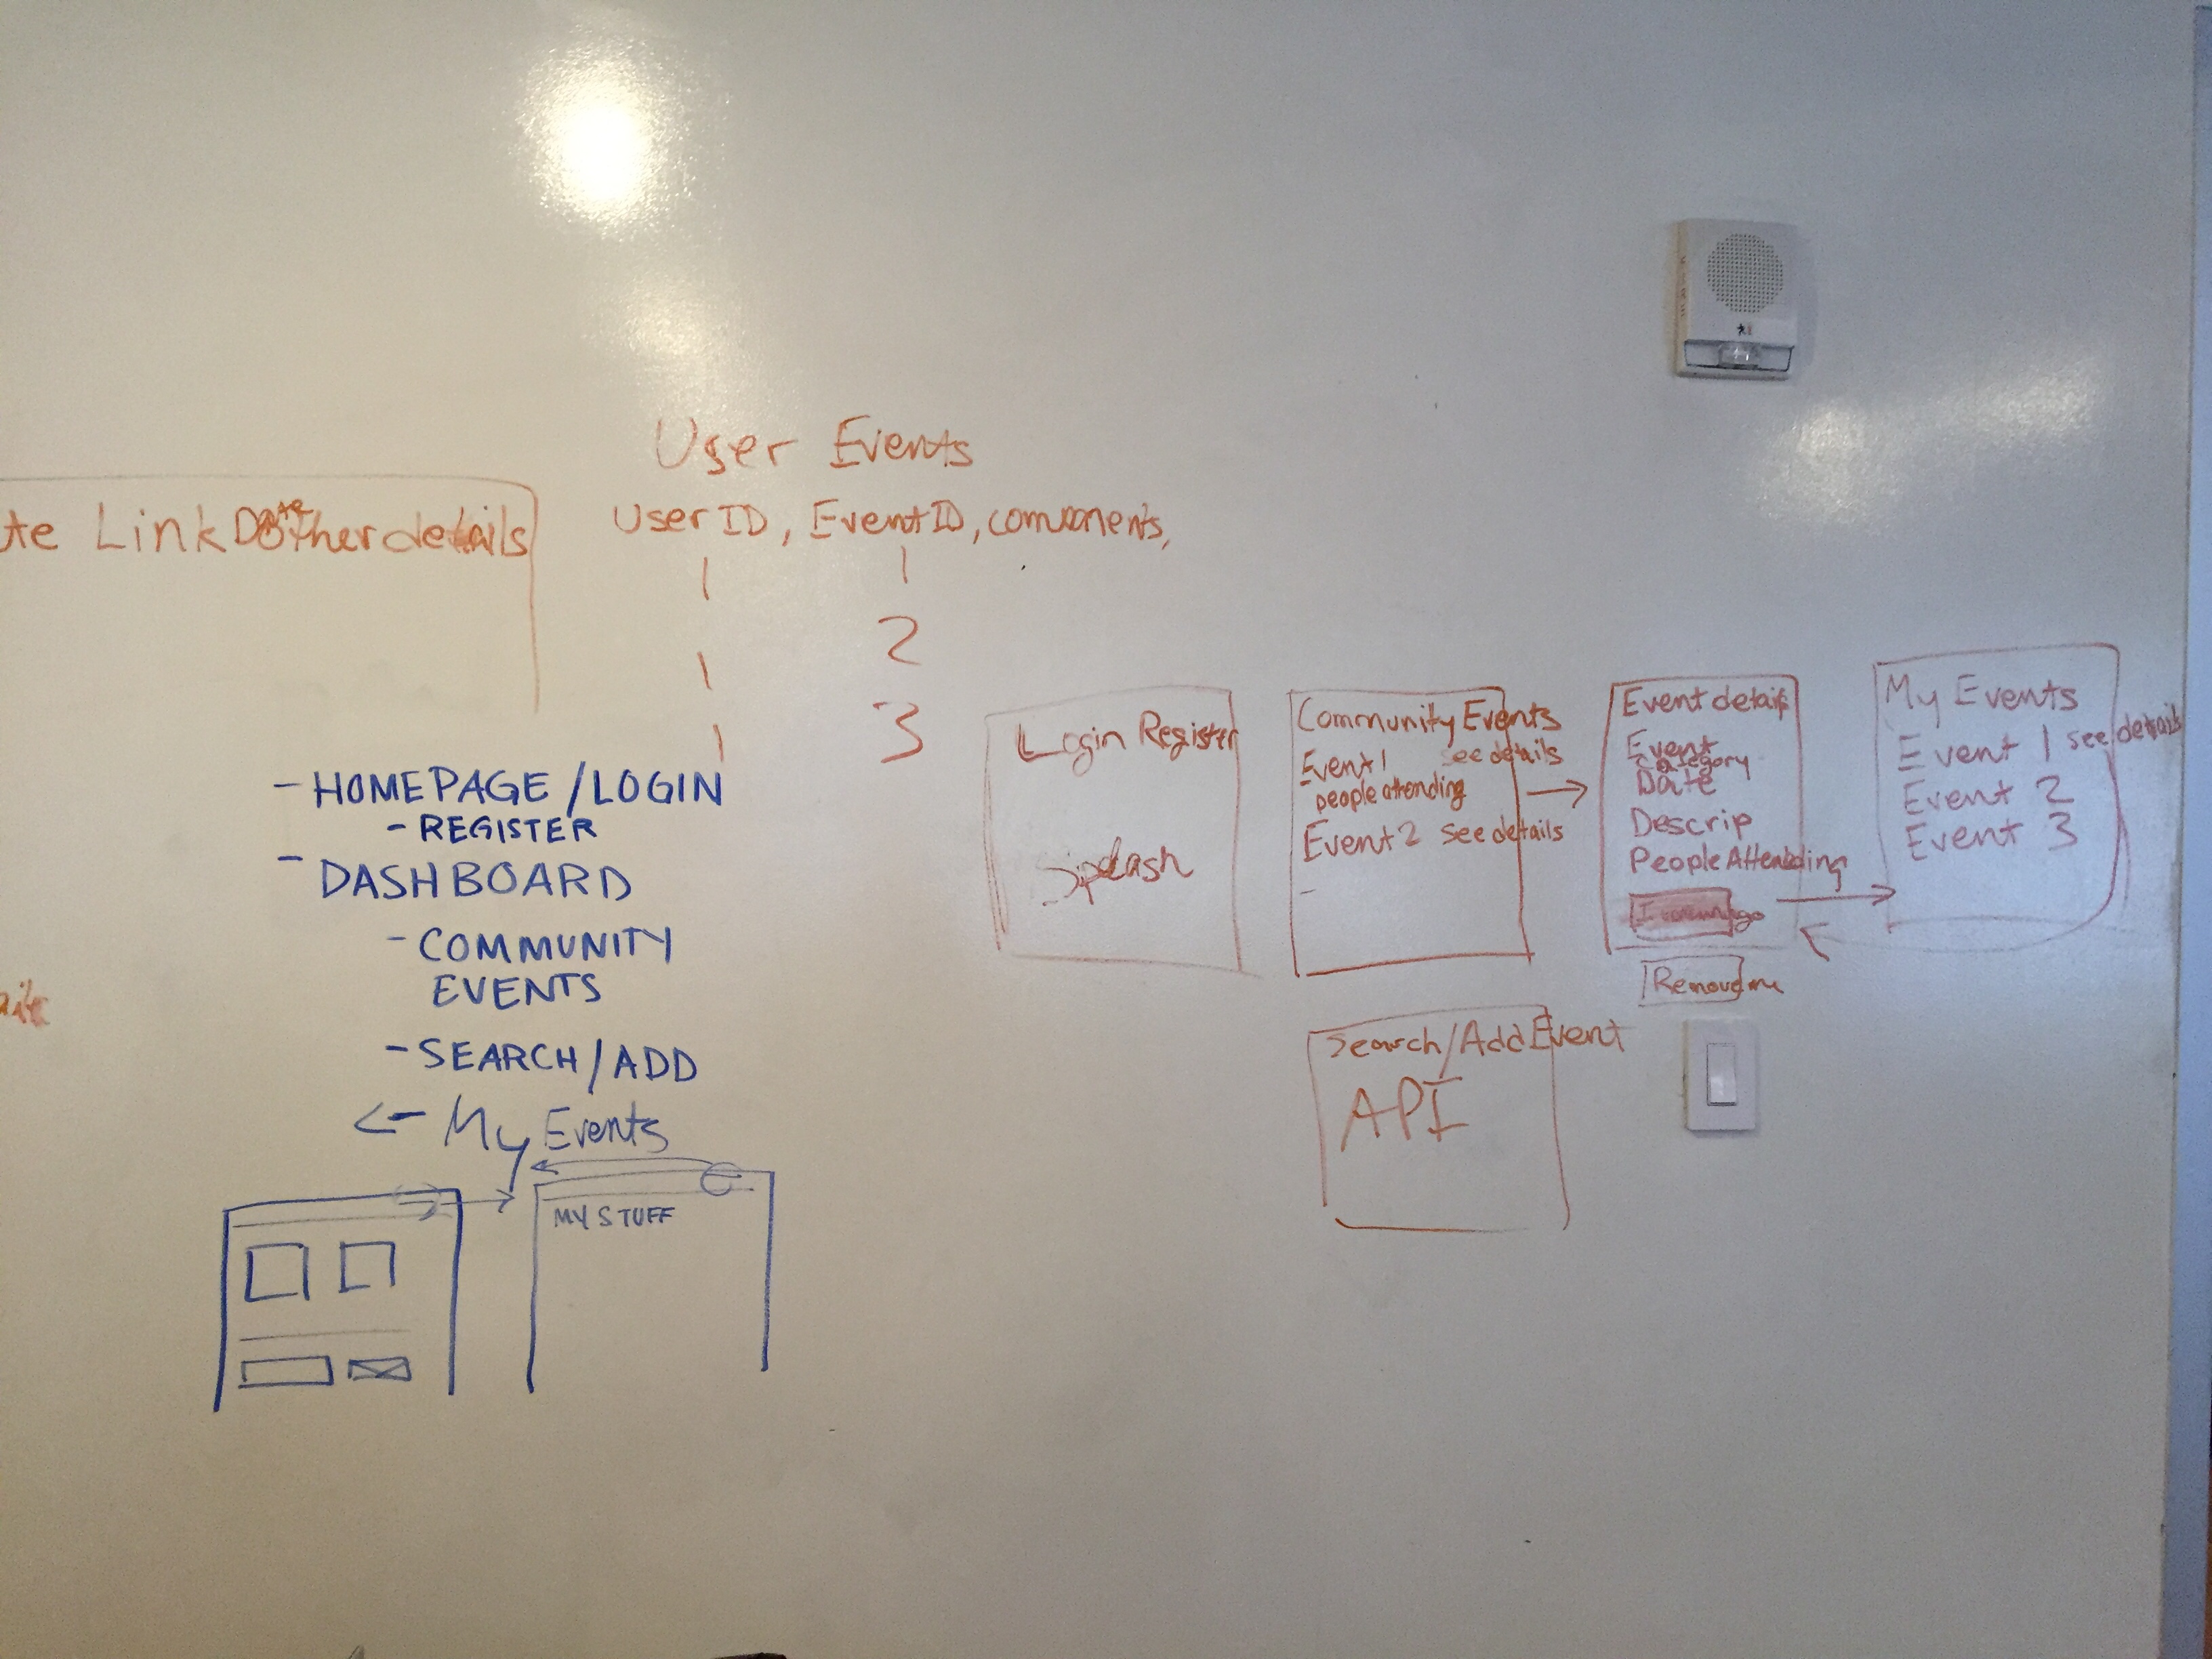 User Events
te Link Date Other details
User ID, Event ID, components,
1 1
1 2
1 3
- HOMEPAGE / LOGIN
- REGISTER
- DASHBOARD
- COMMUNITY
EVENTS
- SEARCH / ADD
<- My Events
MY STUFF
Login Register
Splash
Community Events
Event 1 see details
people attending
Event 2 see details
-
Event details
Event
Category
Date
Descrip
People Attending
Remove me
My Events
Event 1 see details
Event 2
Event 3
Search/Add Event
API